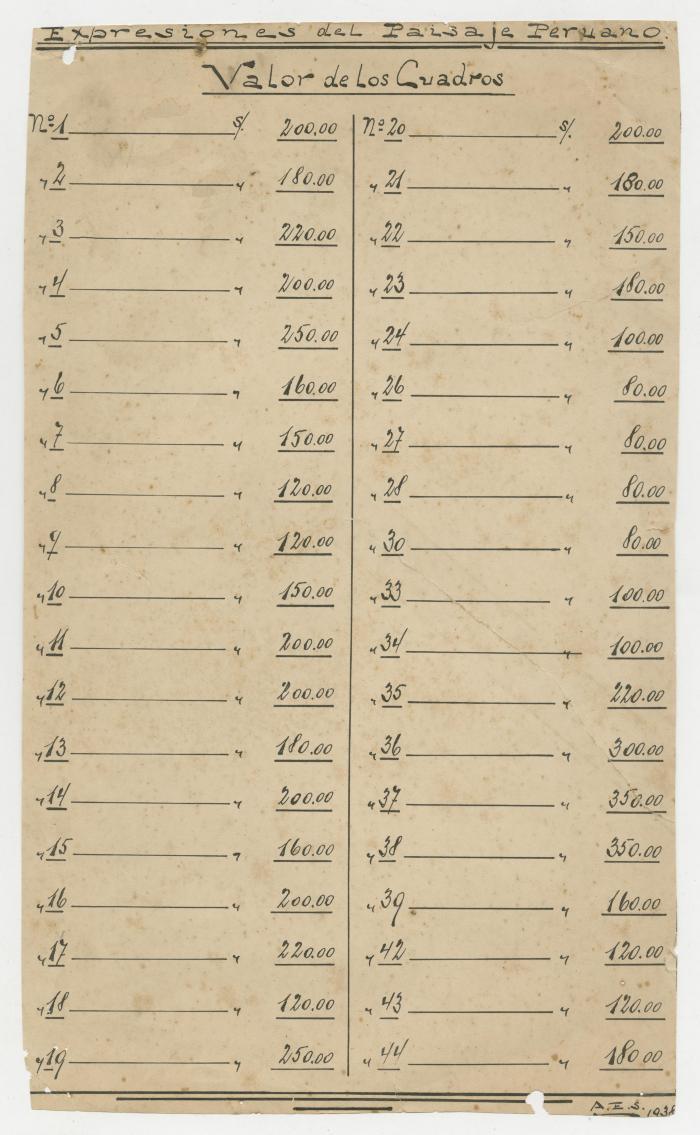 Expresiones del Paisaje Peruano.
Valor de Los Cuadros
Nº 1 s/. 200.00
" 2 " 180.00
" 3 " 220.00
" 4 " 200.00
" 5 " 250.00
" 6 " 160.00
" 7 " 150.00
" 8 " 120.00
" 9 " 120.00
" 10 " 150.00
" 11 " 200.00
" 12 " 200.00
" 13 " 180.00
" 14 " 200.00
" 15 " 160.00
" 16 " 200.00
" 17 " 220.00
" 18 " 120.00
" 19 " 250.00
Nº 20 s/. 200.00
" 21 " 180.00
" 22 " 150.00
" 23 " 180.00
" 24 " 100.00
" 26 " 80.00
" 27 " 80.00
" 28 " 80.00
" 30 " 80.00
" 33 " 100.00
" 34 " 100.00
" 35 " 220.00
" 36 " 300.00
" 37 " 350.00
" 38 " 350.00
" 39 " 160.00
" 42 " 120.00
" 43 " 120.00
" 44 " 180.00
A.E.S.